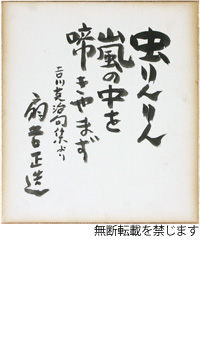 虫りんりん
嵐の中を
啼きやまず
吉川英治句集より
扇谷正造
無断転載を禁じます